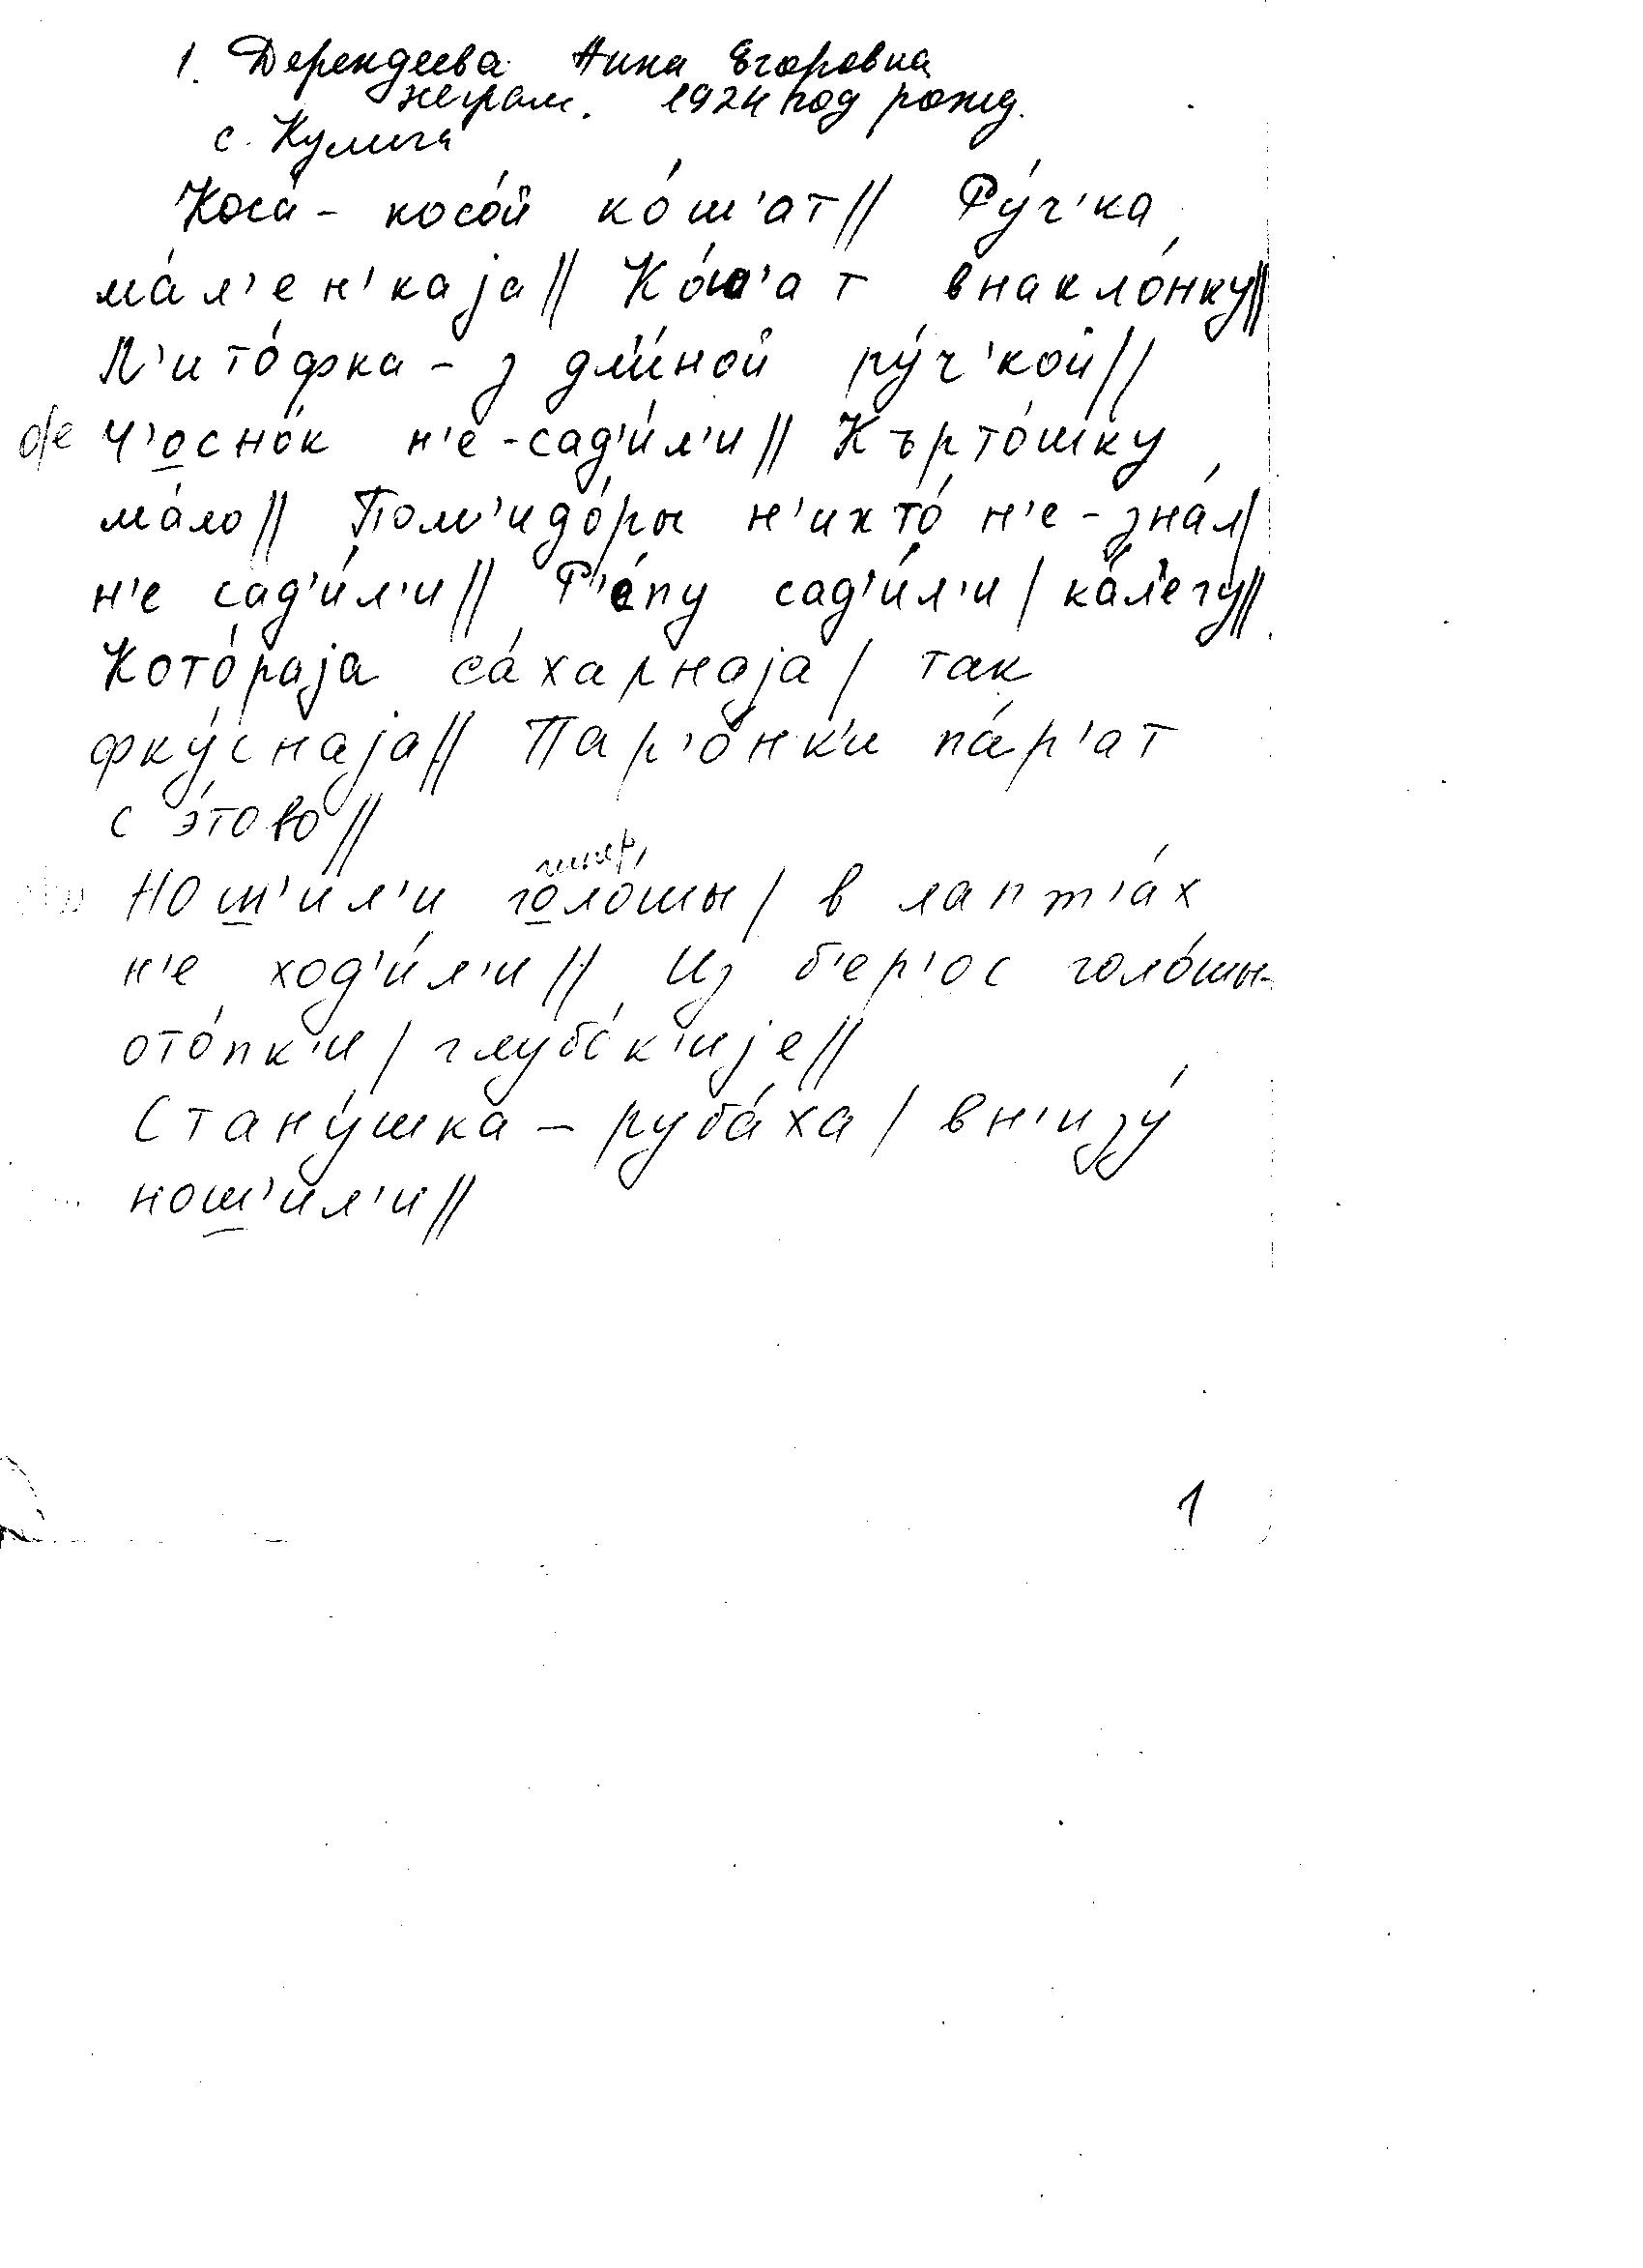 1. Дерендеева Анна Егоровна
неграм. 1924 год рожд.
с. Кулига
Коса́ - косо́й ко́ш'ат // Ру́ч'ка
ма́л'ен'каjа // Ко́ш'ат внакло́нку //
Л'ито́фка - з дл'и́ной ру́ч'кой //
о/е Ч'осно́к н'е-сад'и́л'и // Къртошку
ма́ло // Пом'идо́ры н'ихто́ н'е-зна́л /
н'е сад'и́л'и // Р'е́пу сад'и́л'и / ка́л'егу //
Кото́раjа са́харнаjа / так
фку́снаjа // Пар'о́нк'и па́р'ат
с э́тово //
Нош'ил'и голо́шы / в лапт'а́х
н'е ход'и́л'и // Из б'ер'ос голо́шы-
ото́пк'и / глубо́к'иjе //
Стану́шка - руба́ха / вн'изу́
нош'ил'и //
1